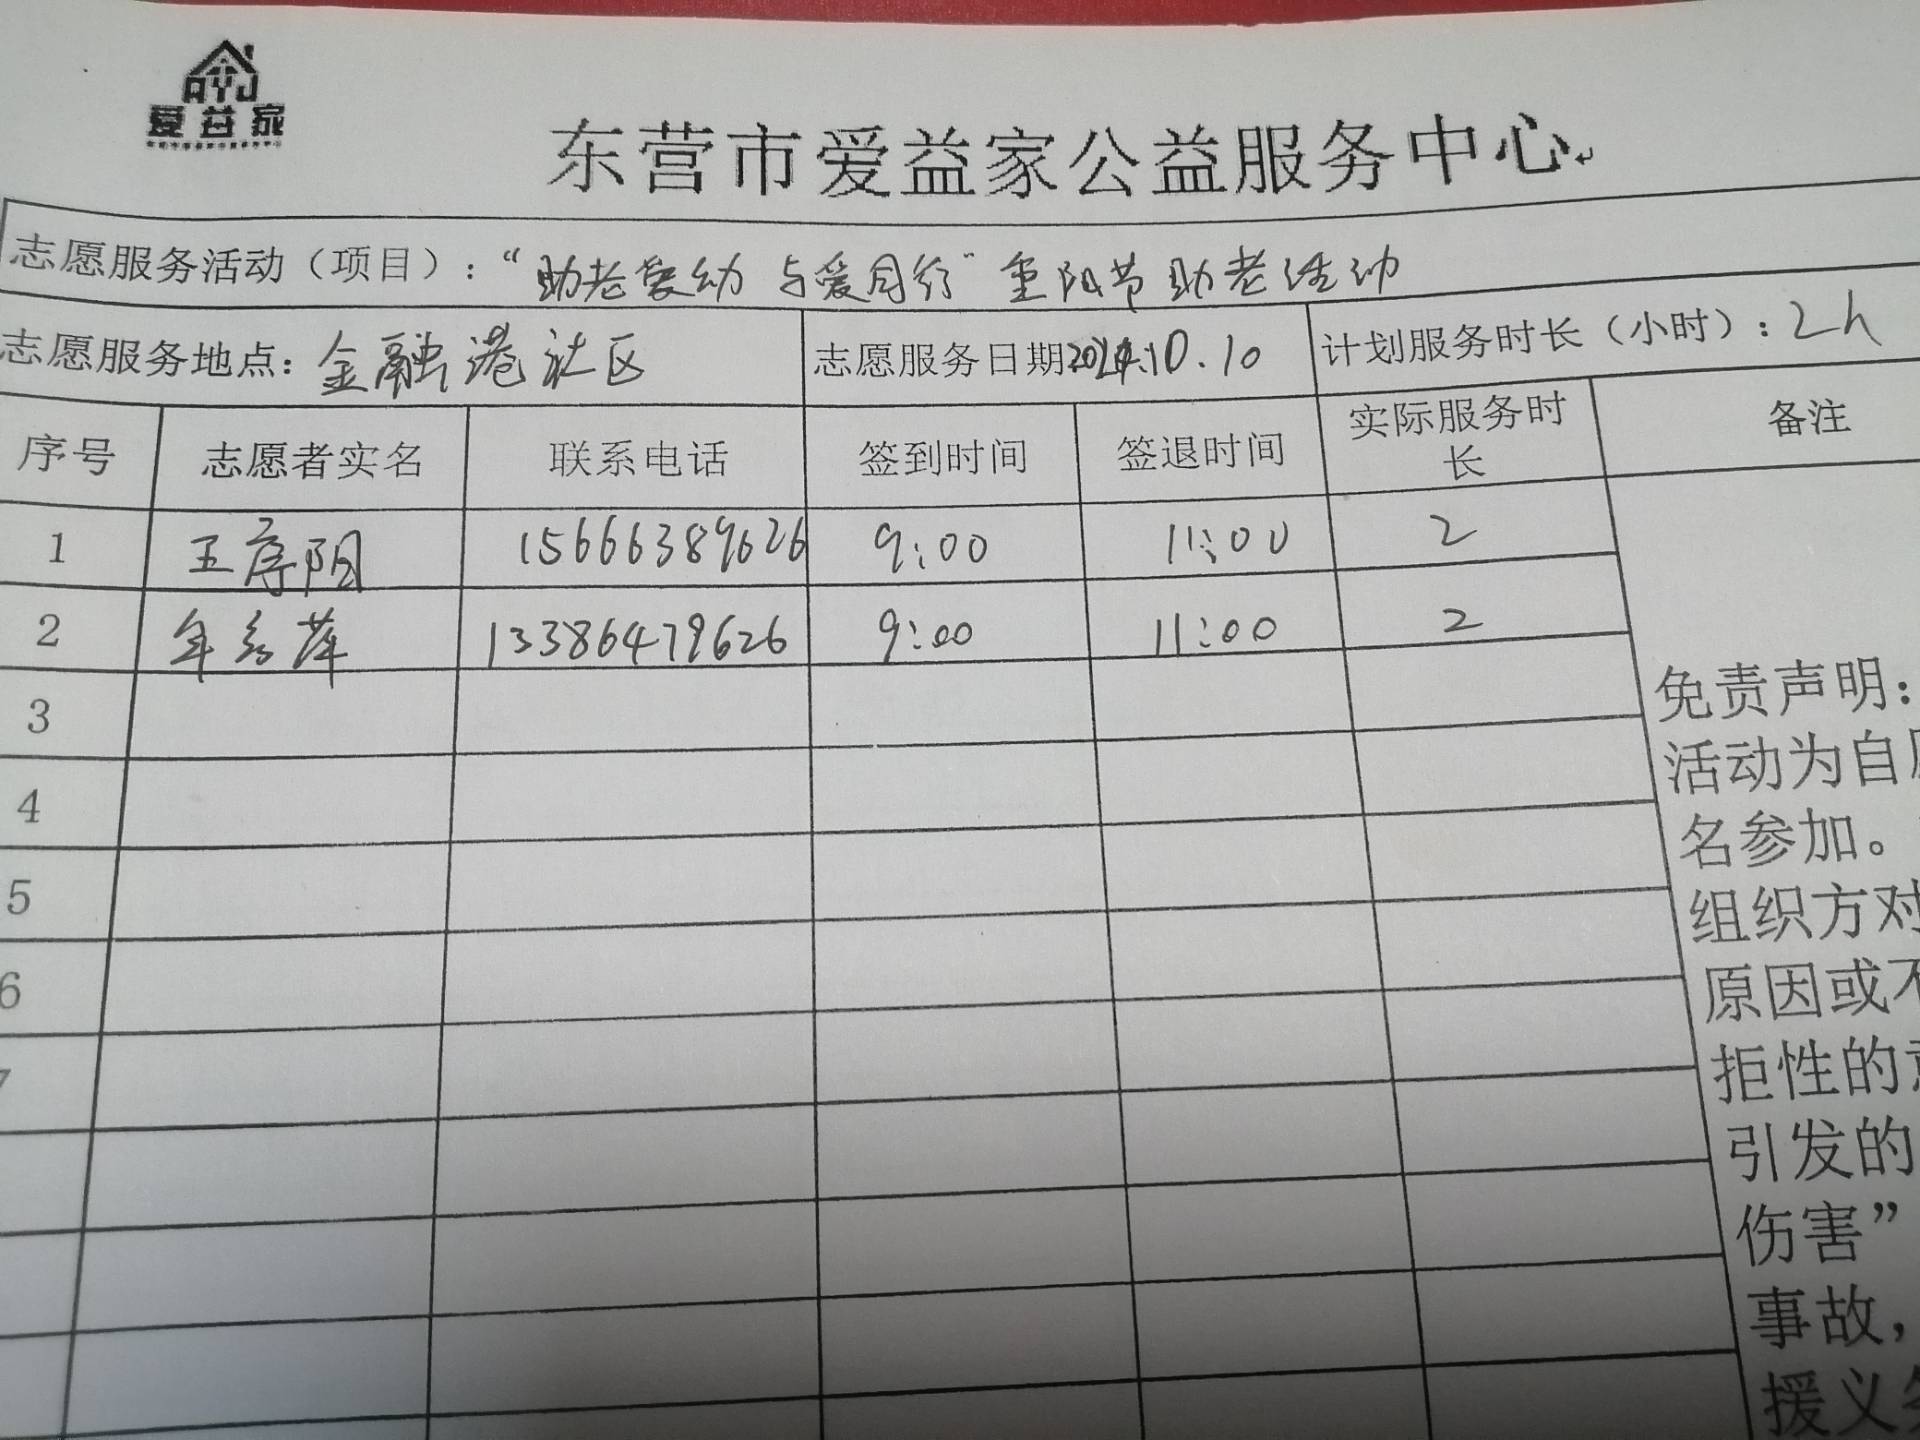 AYJ
爱益家
东营市爱益家公益服务中心
志愿服务活动（项目）：“助老爱幼 与爱同行”重阳节助老活动
志愿服务地点：金融港社区 志愿服务日期 10.10 计划服务时长（小时）：2h
序号 志愿者实名 联系电话 签到时间 签退时间 实际服务时长 备注
1 王序阳 15666389626 9:00 11:00 2
2 13386479626 9:00 11:00 2
3
4
5
6
7
免责声明：
活动为自
名参加。
组织方对
原因或不
拒性的意
引发的
伤害”
事故，
援义务